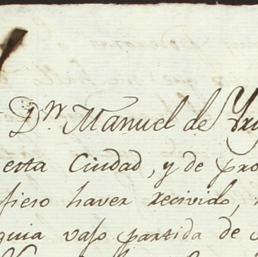 Dn. Manuel de Yri
esta Ciudad, y de pro
fieso haver recivido,
quia vajo partida de